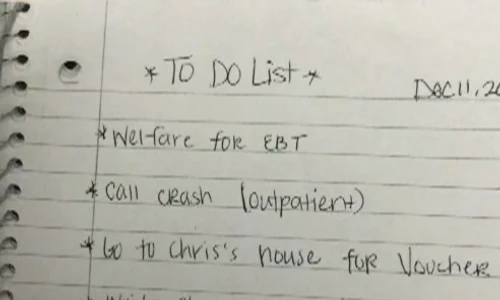 * TO DO List *
DEC 11, 20
* Welfare for EBT
* Call crash (outpatient)
* Go to Chris's house for Voucher